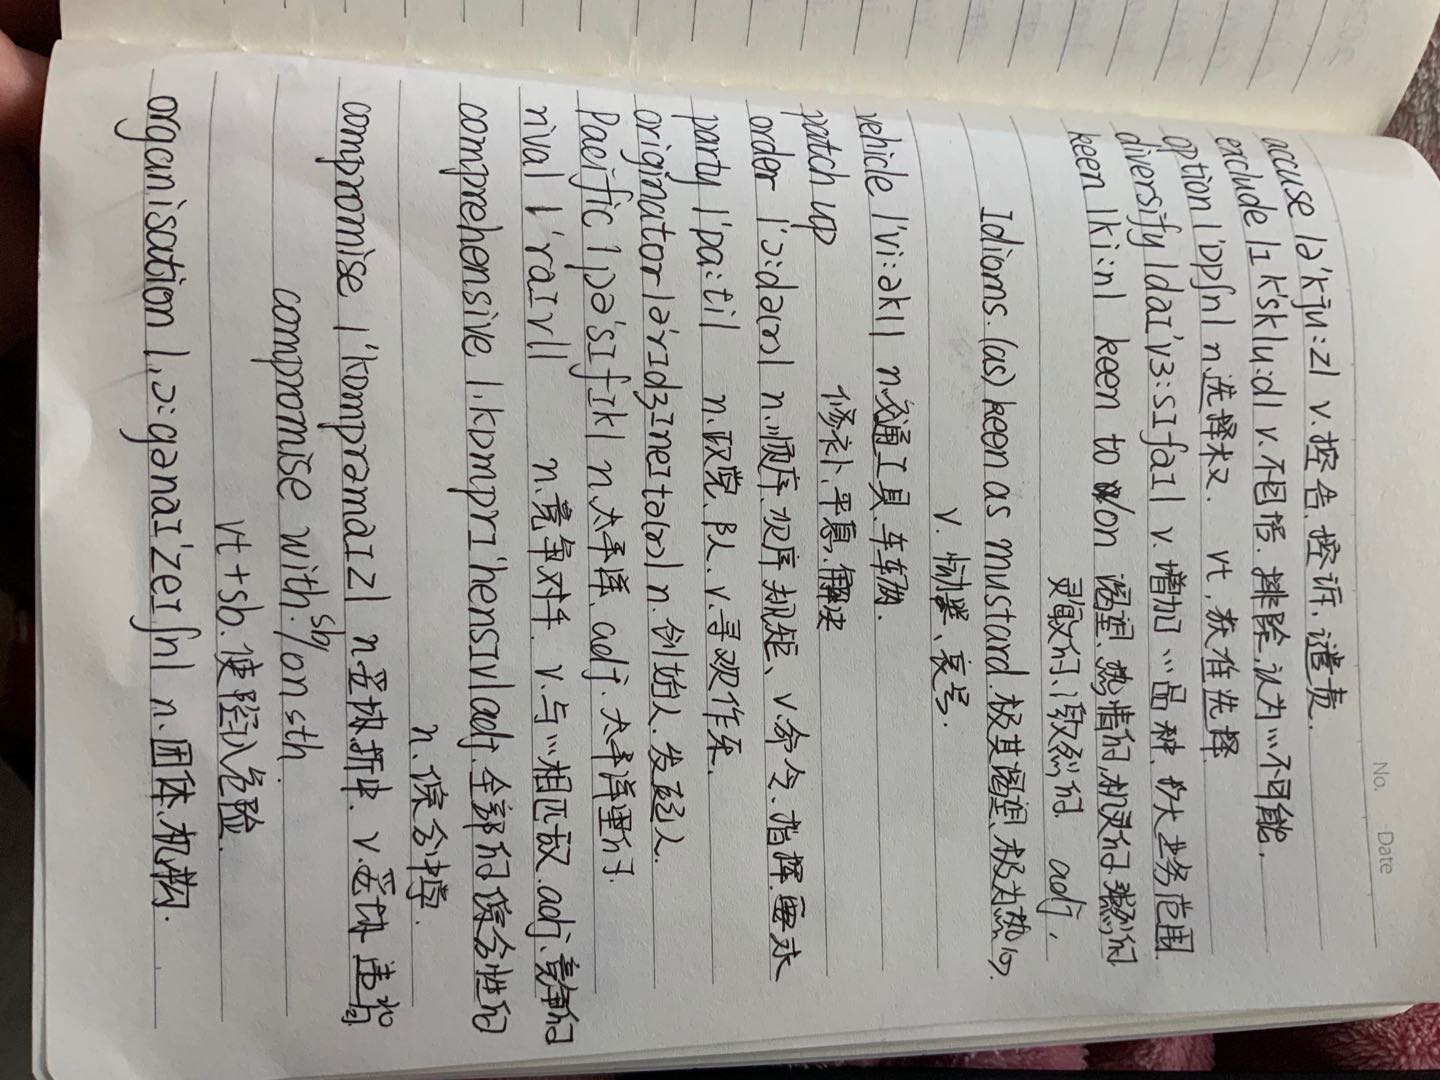 No.
Date
accuse |ə'kju:z| v.控告.控诉.谴责.
exclude |ɪk'sklu:d| v.不包括.排除.认为…不可能.
option |'ɒpʃn| n.选择权. vt.获准选择
diversify |daɪ'vɜ:sɪfaɪ| v.增加…品种.扩大业务范围
keen |ki:n| keen to /on 渴望.热情的机灵的.强烈的
灵敏的、激烈的 adj,
Idioms.(as) keen as mustard.极其渴望、极为热心.
v.恸哭、哀号.
vehicle |'vi:əkl| n.交通工具.车辆.
patch up 修补、平息.解决
order |'ɔ:də(r)| n.顺序.次序.规矩、v.命令、指挥.要求
party |'pa:ti| n.政党.队人.v.寻欢作乐.
originator |ə'rɪdʒɪneɪtə(r)| n.创始人.发起人.
Pacific |pə'sɪfɪk| n.太平洋.adj.太平洋里的.
rival |'raɪvl| n.竞争对手. v.与…相匹敌.adj.竞争的
comprehensive |,kɒmprɪ'hensɪv| adj.全部的综合性的
n.综合中学.
compromise |'kɒmprəmaɪz| n妥协折中. v.妥协.违背
compromise with sb/on sth.
vt+sb.使陷入危险.
organisation |,ɔ:gənaɪ'zeɪʃn| n.团体.机构.